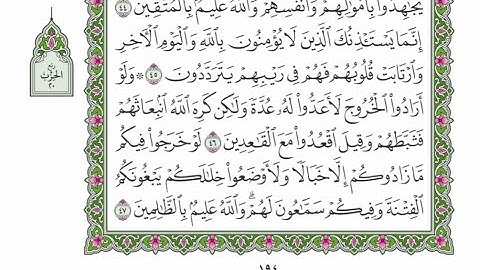 يُجَٰهِدُوا۟ بِأَمْوَٰلِهِمْ وَأَنفُسِهِمْ وَٱللَّهُ عَلِيمٌۢ بِٱلْمُتَّقِينَ ٤٤
إِنَّمَا يَسْتَـْٔذِنُكَ ٱلَّذِينَ لَا يُؤْمِنُونَ بِٱللَّهِ وَٱلْيَوْمِ ٱلْـَٔاخِرِ
وَٱرْتَابَتْ قُلُوبُهُمْ فَهُمْ فِى رَيْبِهِمْ يَتَرَدَّدُونَ ٤٥ ۞ وَلَوْ
أَرَادُوا۟ ٱلْخُرُوجَ لَأَعَدُّوا۟ لَهُۥ عُدَّةً وَلَٰكِن كَرِهَ ٱللَّهُ ٱنۢبِعَاثَهُمْ
فَثَبَّطَهُمْ وَقِيلَ ٱقْعُدُوا۟ مَعَ ٱلْقَٰعِدِينَ ٤٦ لَوْ خَرَجُوا۟ فِيكُم
مَّا زَادُوكُمْ إِلَّا خَبَالًا وَلَأَوْضَعُوا۟ خِلَٰلَكُمْ يَبْغُونَكُمُ
ٱلْفِتْنَةَ وَفِيكُمْ سَمَّٰعُونَ لَهُمْ ۗ وَٱللَّهُ عَلِيمٌۢ بِٱلظَّٰلِمِينَ ٤٧
ربع
الحزب
٢٠
١٩٤